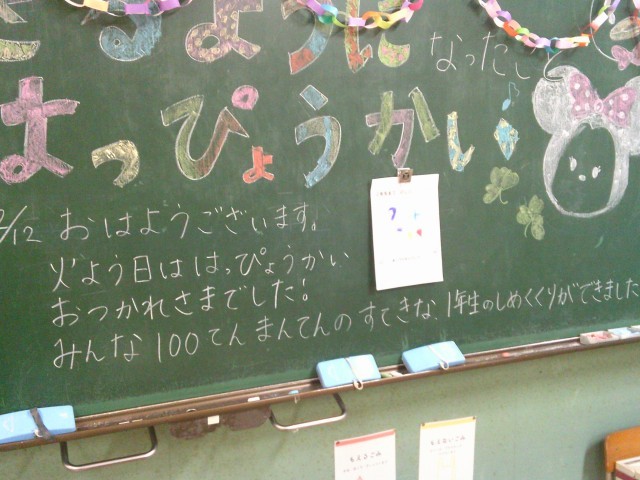 きょうに
なったよ
はっぴょうかい
/12 おはようございます。
火よう日ははっぴょうかい
おつかれさまでした!
みんな100てんまんてんのすてきな、1年生のしめくくりができました
もえるごみ
もえないごみ